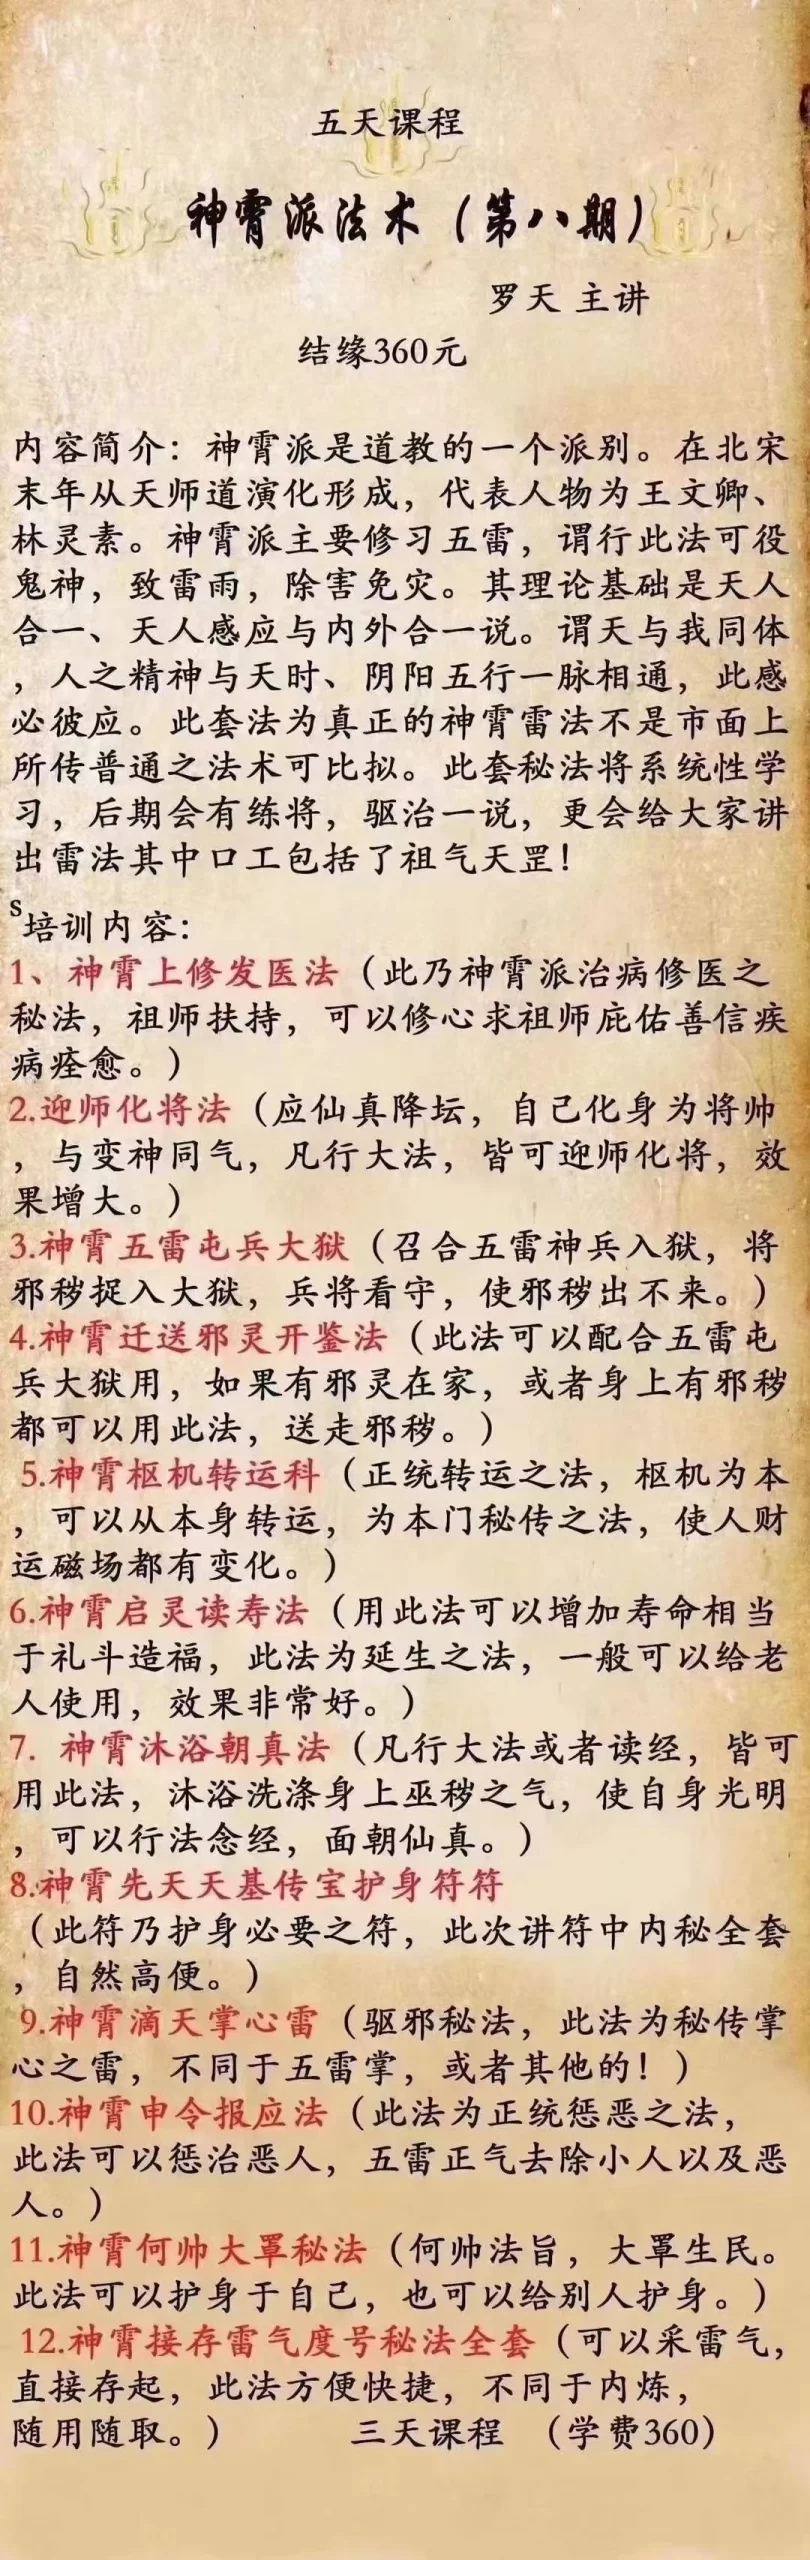 五天课程
神霄派法术（第八期）
罗天 主讲
结缘360元
内容简介：神霄派是道教的一个派别。在北宋
末年从天师道演化形成，代表人物为王文卿、
林灵素。神霄派主要修习五雷，谓行此法可役
鬼神，致雷雨，除害免灾。其理论基础是天人
合一、天人感应与内外合一说。谓天与我同体
，人之精神与天时、阴阳五行一脉相通，此感
必彼应。此套法为真正的神霄雷法不是市面上
所传普通之法术可比拟。此套秘法将系统性学
习，后期会有练将，驱治一说，更会给大家讲
出雷法其中口工包括了祖气天罡！
s培训内容：
1、神霄上修发医法（此乃神霄派治病修医之
秘法，祖师扶持，可以修心求祖师庇佑善信疾
病痊愈。）
2.迎师化将法（应仙真降坛，自己化身为将帅
，与变神同气，凡行大法，皆可迎师化将，效
果增大。）
3.神霄五雷屯兵大狱（召合五雷神兵入狱，将
邪秽捉入大狱，兵将看守，使邪秽出不来。）
4.神霄迁送邪灵开鉴法（此法可以配合五雷屯
兵大狱用，如果有邪灵在家，或者身上有邪秽
都可以用此法，送走邪秽。）
5.神霄枢机转运科（正统转运之法，枢机为本
，可以从本身转运，为本门秘传之法，使人财
运磁场都有变化。）
6.神霄启灵读寿法（用此法可以增加寿命相当
于礼斗造福，此法为延生之法，一般可以给老
人使用，效果非常好。）
7. 神霄沐浴朝真法（凡行大法或者读经，皆可
用此法，沐浴洗涤身上巫秽之气，使自身光明
，可以行法念经，面朝仙真。）
8.神霄先天天基传宝护身符符
（此符乃护身必要之符，此次讲符中内秘全套
，自然高便。）
9.神霄滴天掌心雷（驱邪秘法，此法为秘传掌
心之雷，不同于五雷掌，或者其他的！）
10.神霄申令报应法（此法为正统惩恶之法，
此法可以惩治恶人，五雷正气去除小人以及恶
人。）
11.神霄何帅大罩秘法（何帅法旨，大罩生民。
此法可以护身于自己，也可以给别人护身。）
12.神霄接存雷气度号秘法全套（可以采雷气，
直接存起，此法方便快捷，不同于内炼，
随用随取。） 三天课程 （学费360）